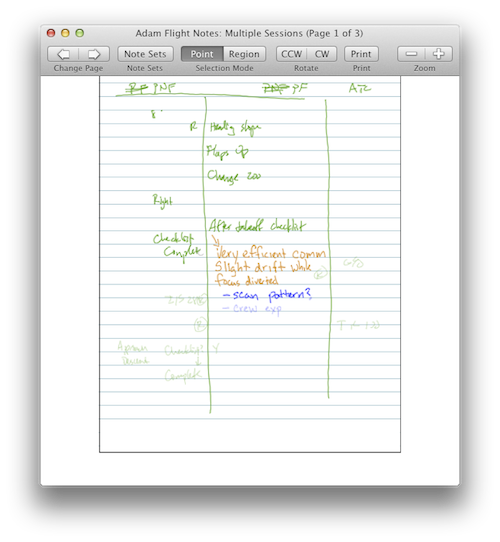 Adam Flight Notes: Multiple Sessions (Page 1 of 3)
Note Sets Point Region CCW CW Print
Change Page Note Sets Selection Mode Rotate Print Zoom
PNF PF ATC
R
Flaps Up
Change 200
Right
After takeoff checklist
Checklist
Complete
Very efficient comm
Slight drift while
focus diverted
- scan pattern?
- crew exp
R
Checklist
Complete